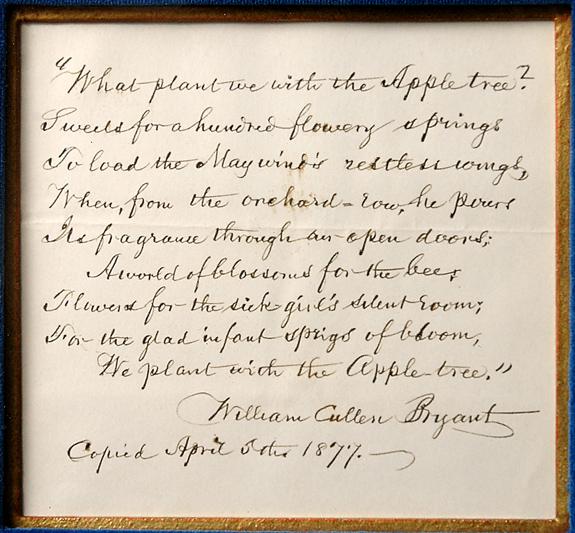 "What plant we with the Apple tree?
Sweets for a hundred flowery springs
To load the May wind's restless wings,
When, from the orchard-row, he pours
Its fragrance through our open doors;
A world of blossoms for the bee;
Flowers for the sick girl's silent room;
For the glad infant sprigs of bloom,
We plant with the Apple-tree."
William Cullen Bryant
Copied April 5th 1877.